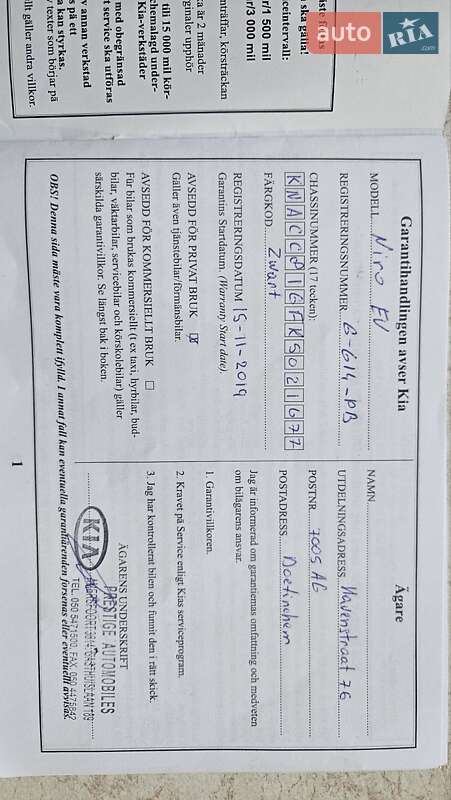 äste finnas
ska gälla!
ceintervall:
r/1 500 mil
r/3 000 mil
nträffar, körsträckan
ka är 2 månader
ginaler upphör
till 15 000 mil kör-
chemalagd under-
Kia-verkstäder
med obegränsad
t service ska utföras
v annan verkstad
s på ett
ka styrkas.
v texter som börjar på
vill; gäller andra villkor.
auto RIA.com
Garantihandlingen avser Kia
MODELL Niro EV
REGISTRERINGSNUMMER G-614-PB
CHASSINUMMER (17 tecken):
KNACC81GFK5021677
FÄRGKOD Zwart
REGISTRERINGSDATUM 15-11-2019
Garantins Startdatum. (Warranty Start date).
AVSEDD FÖR PRIVAT BRUK ☒
Gäller även tjänstebilar/förmånsbilar.
AVSEDD FÖR KOMMERSIELLT BRUK ☐
För bilar som brukas kommersiellt (t ex taxi, hyrbilar, bud-
bilar, väktarbilar, servicebilar och körskolebilar) gäller
särskilda garantivillkor. Se längst bak i boken.
Ägare
NAMN
UTDELNINGSADRESS Havenstraat 76
POSTNR 7005 AG
POSTADRESS Doetinchem
Jag är informerad om garantiernas omfattning och medveten
om bilägarens ansvar.
1. Garantivillkoren.
2. Kravet på Service enligt Kias serviceprogram.
3. Jag har kontrollerat bilen och funnit den i rätt skick.
ÄGARENS UNDERSKRIFT
PRESTIGE AUTOMOBILES
KIA
GASTHUISLAAN 189
TEL. 050 5471500, FAX. 050 4475842
OBS! Denna sida måste vara komplett ifylld. I annat fall kan eventuella garantiärenden försenas eller eventuellt avvisas.
1